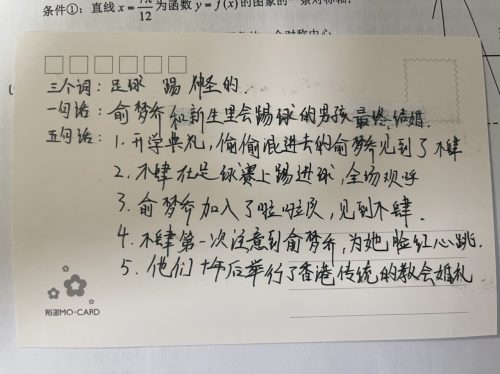 条件①：直线 x = 7π/12 为函数 y = f(x) 的图象的一条对称轴；
三个词：足球 踢 神圣的.
一句话：俞梦乔和新生里会踢球的男孩最终结婚.
五句话：1. 开学典礼，偷偷混进去的俞梦乔见到了不肆
2. 不肆在足球赛上踢进球，全场欢呼
3. 俞梦乔加入了啦啦队，见到不肆.
4. 不肆第一次注意到俞梦乔，为她脸红心跳.
5. 他们十年后举行了香港传统的教会婚礼
陌墨MO·CARD